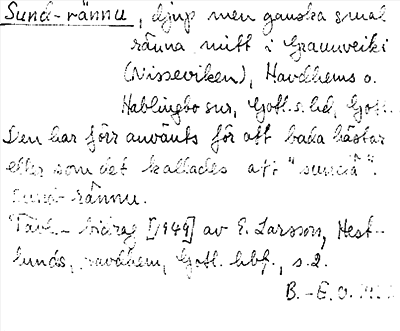 Sund-rännu, djup men ganska smal
ränna mitt i Gramveiki
(Nisseviken), Havdhems o.
Hablingbo snr, Gotl. s. hd, Gotl.
Den har förr använts för att bada hästar
eller som det kallades att "sundä".
Sund-rännu.
Tävl.-bidrag [1949] av E. Larsson, Hest-
lunds, Havdhem, Gotl. hbf., s. 2.
B.-E. O.